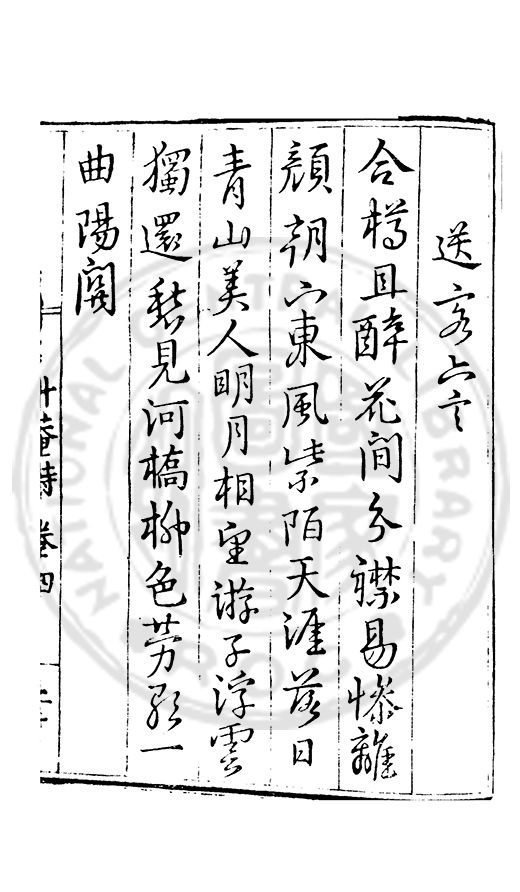 送客六言
合樽且醉花間分襟易慘離
顏朝東風紫陌天涯落日
青山美人明月相望游子浮雲
獨還愁見河橋柳色勞歌一
曲陽關
菴詩 卷四